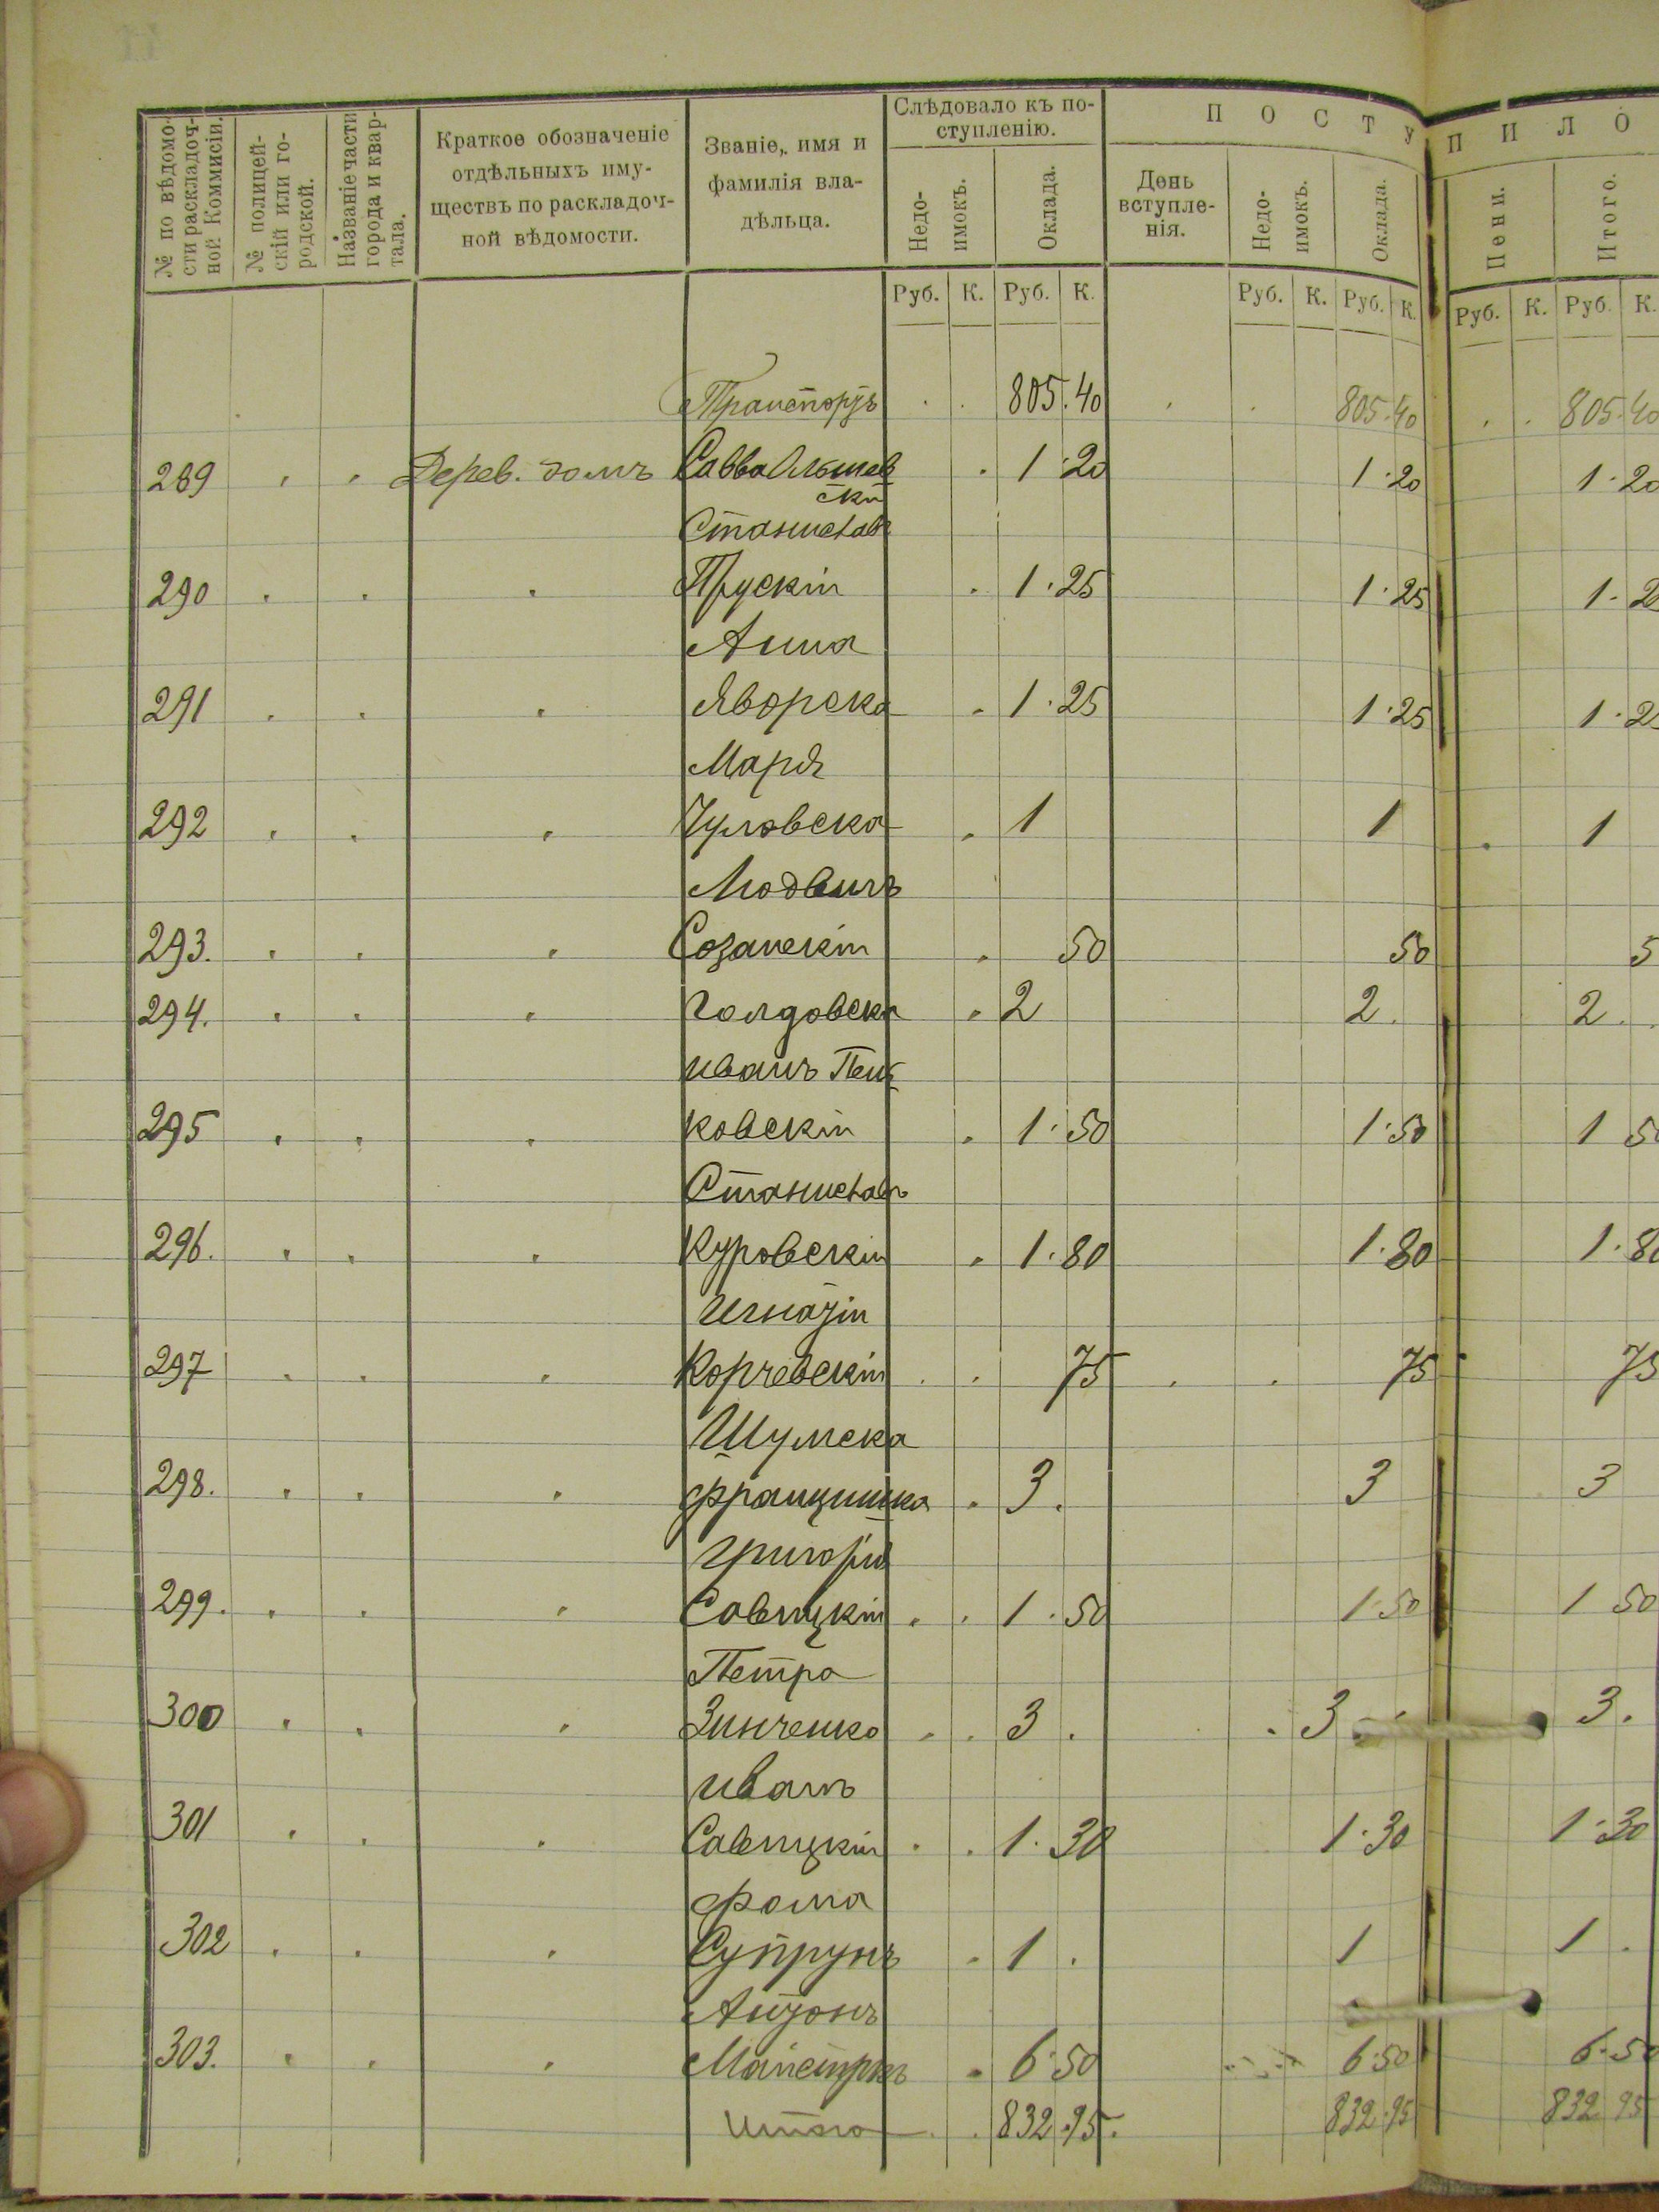 № по вѣдомо-
сти раскладоч-
ной Коммисіи.
№ полицей-
скій или го-
родской.
Названіе части
города и квар-
тала.
Краткое обозначеніе
отдѣльныхъ иму-
ществъ по раскладоч-
ной вѣдомости.
Званіе, имя и
фамилія вла-
дѣльца.
Слѣдовало къ по-
ступленію.
Недо-
имокъ.
Оклада.
ПОСТУПИЛО
День
вступле-
нія.
Недо-
имокъ.
Оклада.
Пени.
Итого.
Руб. К. Руб. К. Руб. К. Руб. К. Руб. К. Руб. К.
Транспортъ 805.40 805.40 805.40
289 Дерев. домъ Савва Ольшев 1.20 1.20 1.20
ски
Станиславъ
290 Прускій 1.25 1.25 1.2
Анна
291 Яворска 1.25 1.25 1.2
Марія
292 Чуловска 1 1 1
Людвигъ
293. Созанскій 50 50 5
294. Голдовска 2 2. 2.
Иванъ Пень
295 ковскій 1.50 1.50 1 50
Станиславъ
296. Куровскій 1.80 1.80 1.80
Игнатій
297 Корчевскій 75 75 75
Шумска
298. Францишка 3. 3 3
Григорій
299. Савицкій 1.50 1.50 1 50
Петро
300 Зинченко 3. 3 3.
Иванъ
301 Савицкій 1.30 1.30 1.30
Фома
302 Супрунъ 1. 1 1.
Антонъ
303. Майструкъ 6.50 6.50 6.50
Итого 832.95. 832.95 832 95